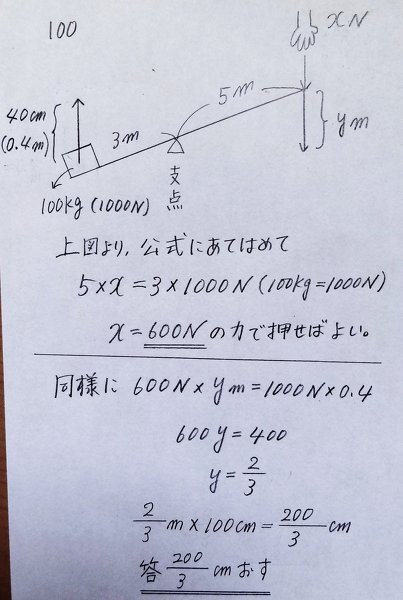 100
xN
5m
40cm
(0.4m)
3m
ym
支点
100kg (1000N)
上図より,公式にあてはめて
5×x=3×1000N(100kg=1000N)
x=600Nの力で押せばよい。
同様に 600N×ym=1000N×0.4
600y=400
y=2/3
2/3 m×100cm=200/3 cm
答 200/3 cmおす